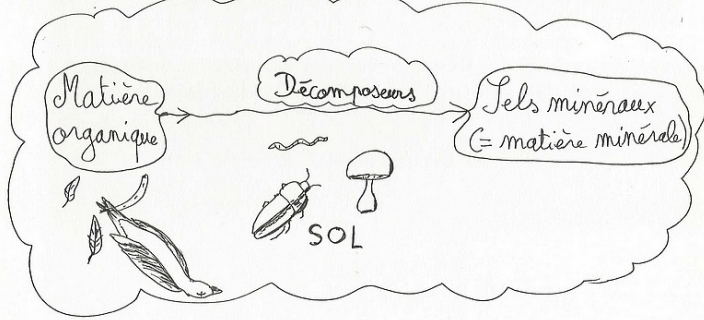 Matière
organique
Décomposeurs
Sels minéraux
(= matière minérale)
SOL